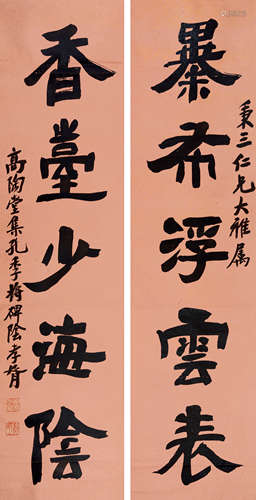 秉三仁兄大雅属
暴希浮雲表
香臺少海陰
高陶堂集孔季将碑陰孝胥